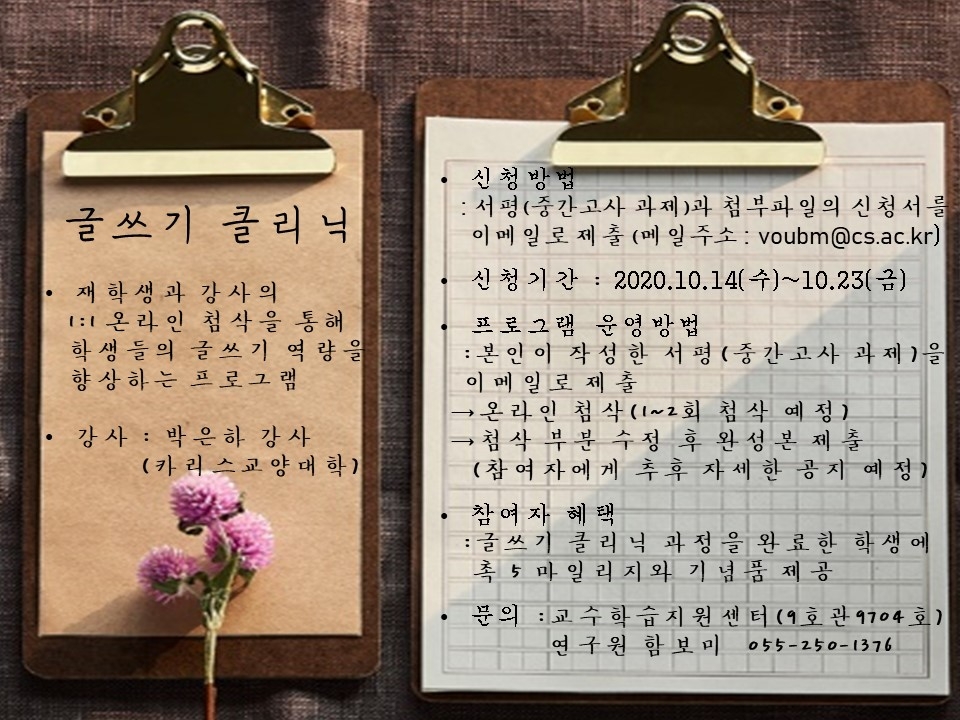 글쓰기 클리닉
• 재학생과 강사의
1:1 온라인 첨삭을 통해
학생들의 글쓰기 역량을
향상하는 프로그램
• 강사 : 박은하 강사
(카리스교양대학)
• 신청방법
: 서평(중간고사 과제)과 첨부파일의 신청서를
이메일로 제출 (메일주소 : voubm@cs.ac.kr)
• 신청기간 : 2020.10.14(수)~10.23(금)
• 프로그램 운영방법
: 본인이 작성한 서평(중간고사 과제)을
이메일로 제출
→ 온라인 첨삭(1~2회 첨삭 예정)
→ 첨삭 부분 수정 후 완성본 제출
(참여자에게 추후 자세한 공지 예정)
• 참여자 혜택
: 글쓰기 클리닉 과정을 완료한 학생에
촉 5 마일리지와 기념품 제공
• 문의 : 교수학습지원센터(9호관 9704호)
연구원 함보미 055-250-1376